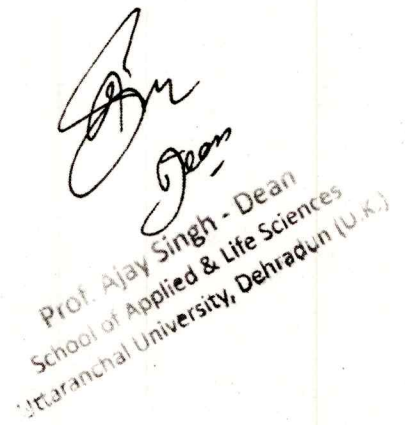 Dean
Prof. Ajay Singh - Dean
School of Applied & Life Sciences
Uttaranchal University, Dehradun (U.K.)